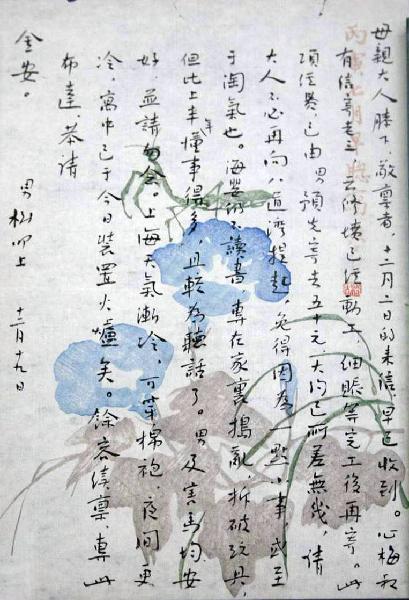 母親大人膝下,敬稟者,十二月二日的來信,早已收到。心梅叔
有信寄老三,云修墳已經動工,細賬等完工後再寄。此
項經費,已由男預先寄去五十元,大約已所差無幾,請
大人不必再向八道灣提起,免得因為一點小事,或至
于淘氣也。海嬰仍不讀書,專在家裏搗亂,拆破玩具,
但比上半年懂事得多,且較為聽話了。男及害馬均安
好,並請勿念。上海天氣漸冷,可穿棉袍,夜間更
冷,寓中已于今日裝置火爐矣。餘容續稟,專此
布達,恭請
金安。
男 樹 叩上 十二月十九日